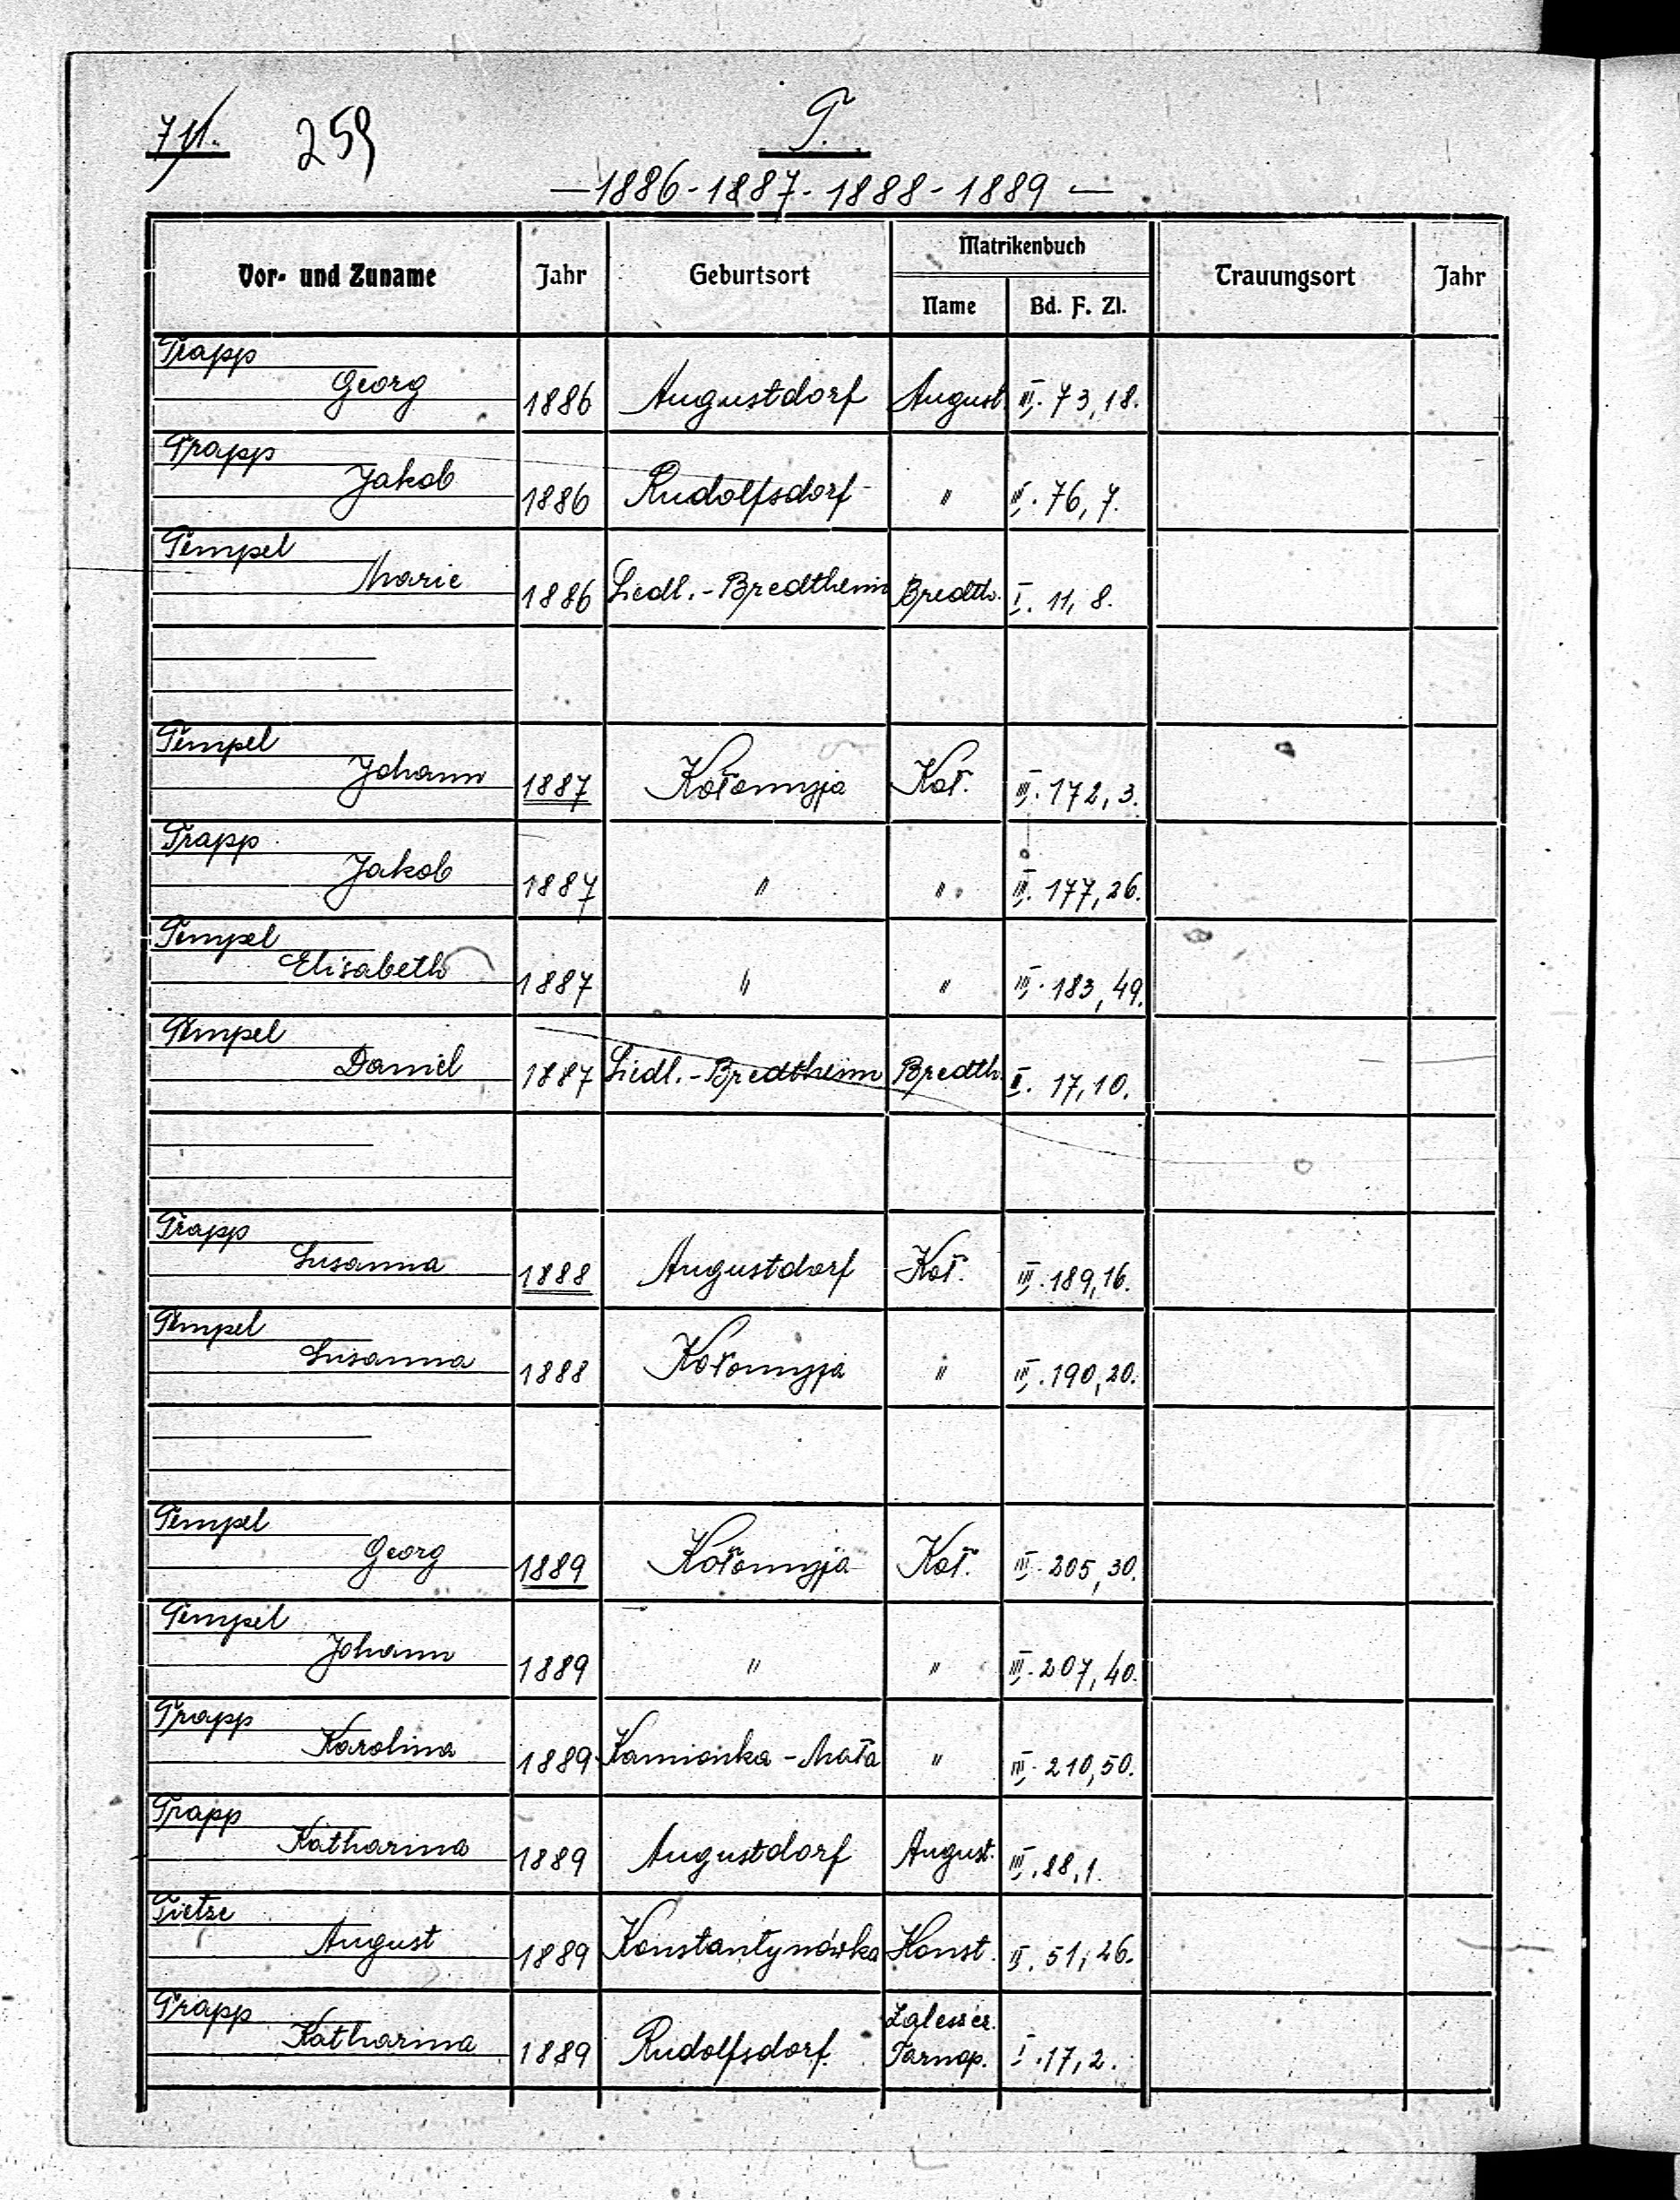 711. 259 T.
—1886-1887-1888-1889—
Vor- und Zuname Jahr Geburtsort Matrikenbuch Trauungsort Jahr
Name Bd. F. Zl.
Trapp
Georg 1886 Augustdorf August. III. 73, 18.
Trapp
Jakob 1886 Rudolfsdorf " III. 76, 7.
Tempel
Marie 1886 Siedl.-Bredtheim Bredth. I. 11, 8.
Tempel
Johann 1887 Kołomyja Koł. III. 172, 3.
Trapp
Jakob 1887 " " III. 177, 26.
Tempel
Elisabeth 1887 " " III. 183, 49.
Tempel
Daniel 1887 Siedl.-Bredtheim Bredth. I. 17, 10.
Trapp
Susanna 1888 Augustdorf Koł. III. 189, 16.
Tempel
Susanna 1888 Kołomyja " III. 190, 20.
Tempel
Georg 1889 Kołomyja Koł. III. 205, 30.
Tempel
Johann 1889 " " III. 207, 40.
Trapp
Karolina 1889 Kamionka-Mała " III. 210, 50.
Trapp
Katharina 1889 Augustdorf August. III. 88, 1.
Tietze
August 1889 Konstantynówka Konst. II. 51, 26.
Trapp Zaleszcz.
Katharina 1889 Rudolfsdorf. Tarnop. I. 17, 2.